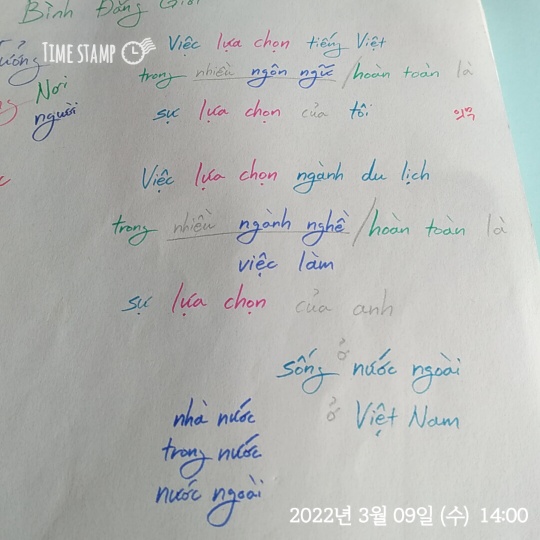 Bình Đẳng Giới
TIME STAMP
Nơi
người
Việc lựa chọn tiếng Việt
trong nhiều ngôn ngữ / hoàn toàn là
sự lựa chọn của tôi
Việc lựa chọn ngành du lịch
trong nhiều ngành nghề / hoàn toàn là
việc làm
sự lựa chọn của anh
sống ở nước ngoài
ở Việt Nam
nhà nước
trong nước
nước ngoài
2022년 3월 09일 (수) 14:00